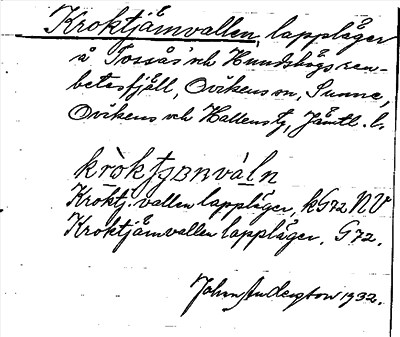 Kroktjärnvallen, lappläger
å Tossås' och Hundshögs ren-
betesfjäll, Ovikens sn, Sunne,
Ovikens och Hallens tg, Jämtl. l.
kròktjɐnvàln
Kroktj. vallen lappläger, kG72 NV
Kroktjärnvallen lappläger. G72.
John Anderston 1932.